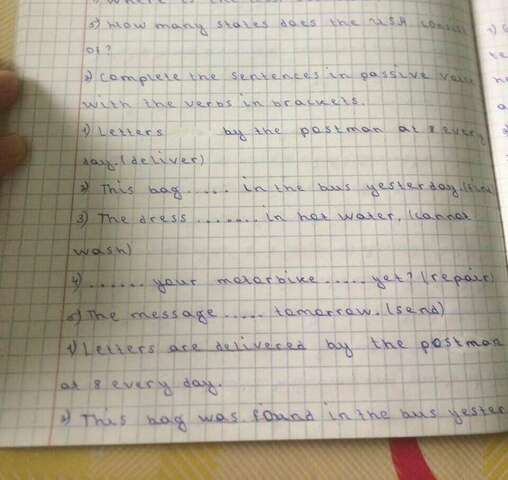 5) How many states does the USA consist
of?
2) Complete the sentences in passive voice
with the verbs in brackets.
1) Letters by the postman at 8 every
day. (deliver)
2) This bag ..... in the bus yesterday. (find
3) The dress ....... in hot water. (cannot
wash)
4) ...... your motorbike ..... yet? (repair)
5) The message ..... tomorrow. (send)
1) Letters are delivered by the postman
at 8 every day.
2) This bag was found in the bus yester